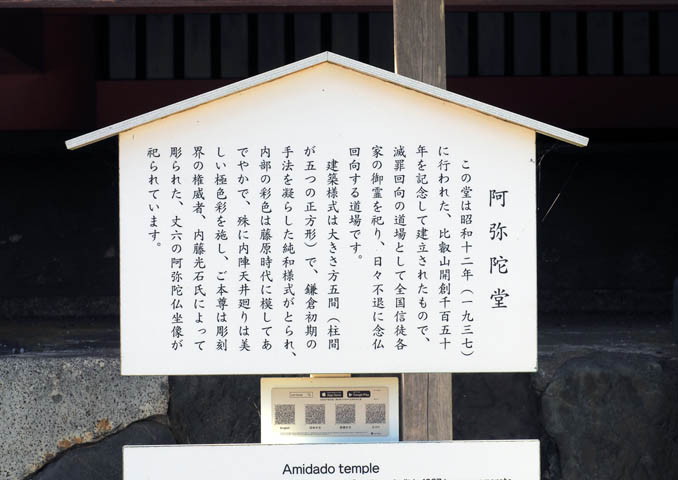 阿弥陀堂
この堂は昭和十二年（一九三七）
に行われた、比叡山開創千百五十
年を記念して建立されたもので、
滅罪回向の道場として全国信徒各
家の御霊を祀り、日々不退に念仏
回向する道場です。
建築様式は大きさ方五間（柱間
が五つの正方形）で、鎌倉初期の
手法を凝らした純和様式がとられ、
内部の彩色は藤原時代に模してあ
でやかで、殊に内陣天井廻りは美
しい極色彩を施し、ご本尊は彫刻
界の権威者、内藤光石氏によって
彫られた、丈六の阿弥陀仏坐像が
祀られています。
App Store
Google Play
Amidado temple